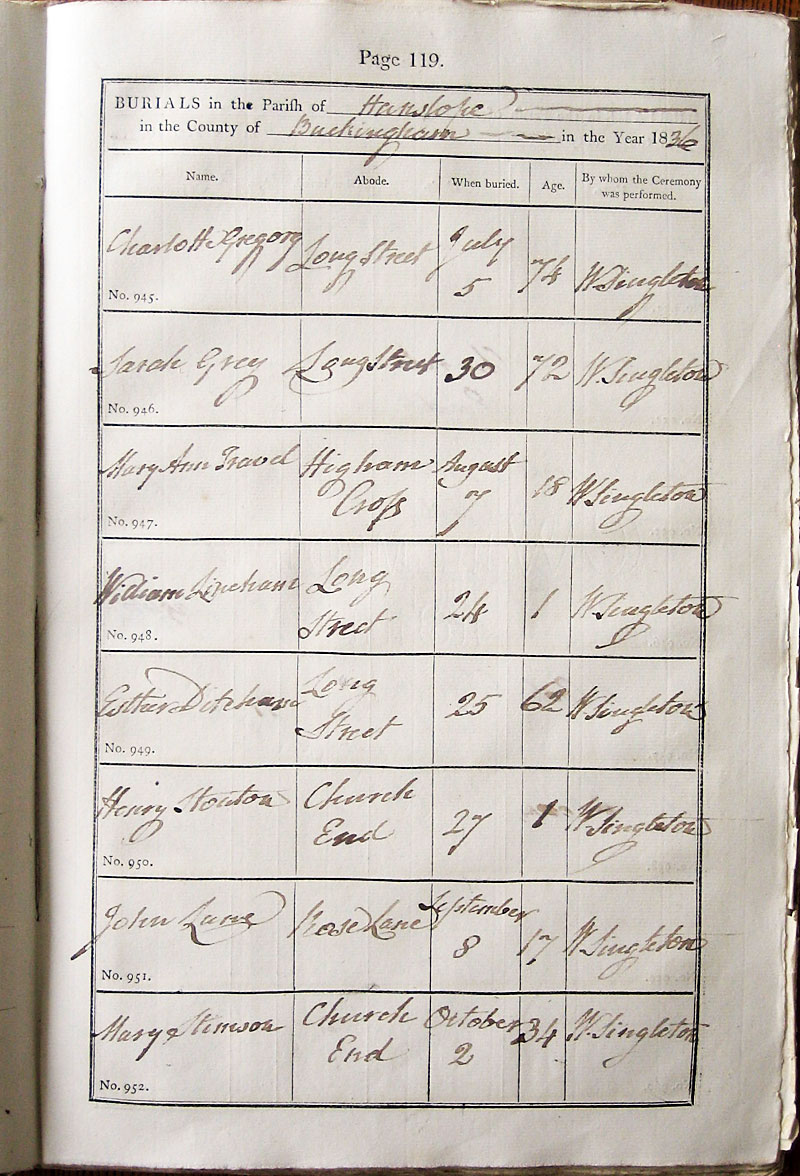 Page 119.
BURIALS in the Parish of Hanslope
in the County of Buckingham in the Year 1836
Name. Abode. When buried. Age. By whom the Ceremony
was performed.
Charlotte Gregory Long Street July
5 74 W Singleton
No. 945.
Sarah Grey Long Street 30 72 W. Singleton
No. 946.
Mary Ann Travel Higham August
Cross 7 18 W Singleton
No. 947.
William Lineham Long
Street 24 1 W Singleton
No. 948.
Esther Ditcham Long
Street 25 62 W Singleton
No. 949.
Henry Church
End 27 1 W Singleton
No. 950.
John Lane Rose Lane September
8 17 W Singleton
No. 951.
Mary Stimson Church October 34 W. Singleton
End 2
No. 952.